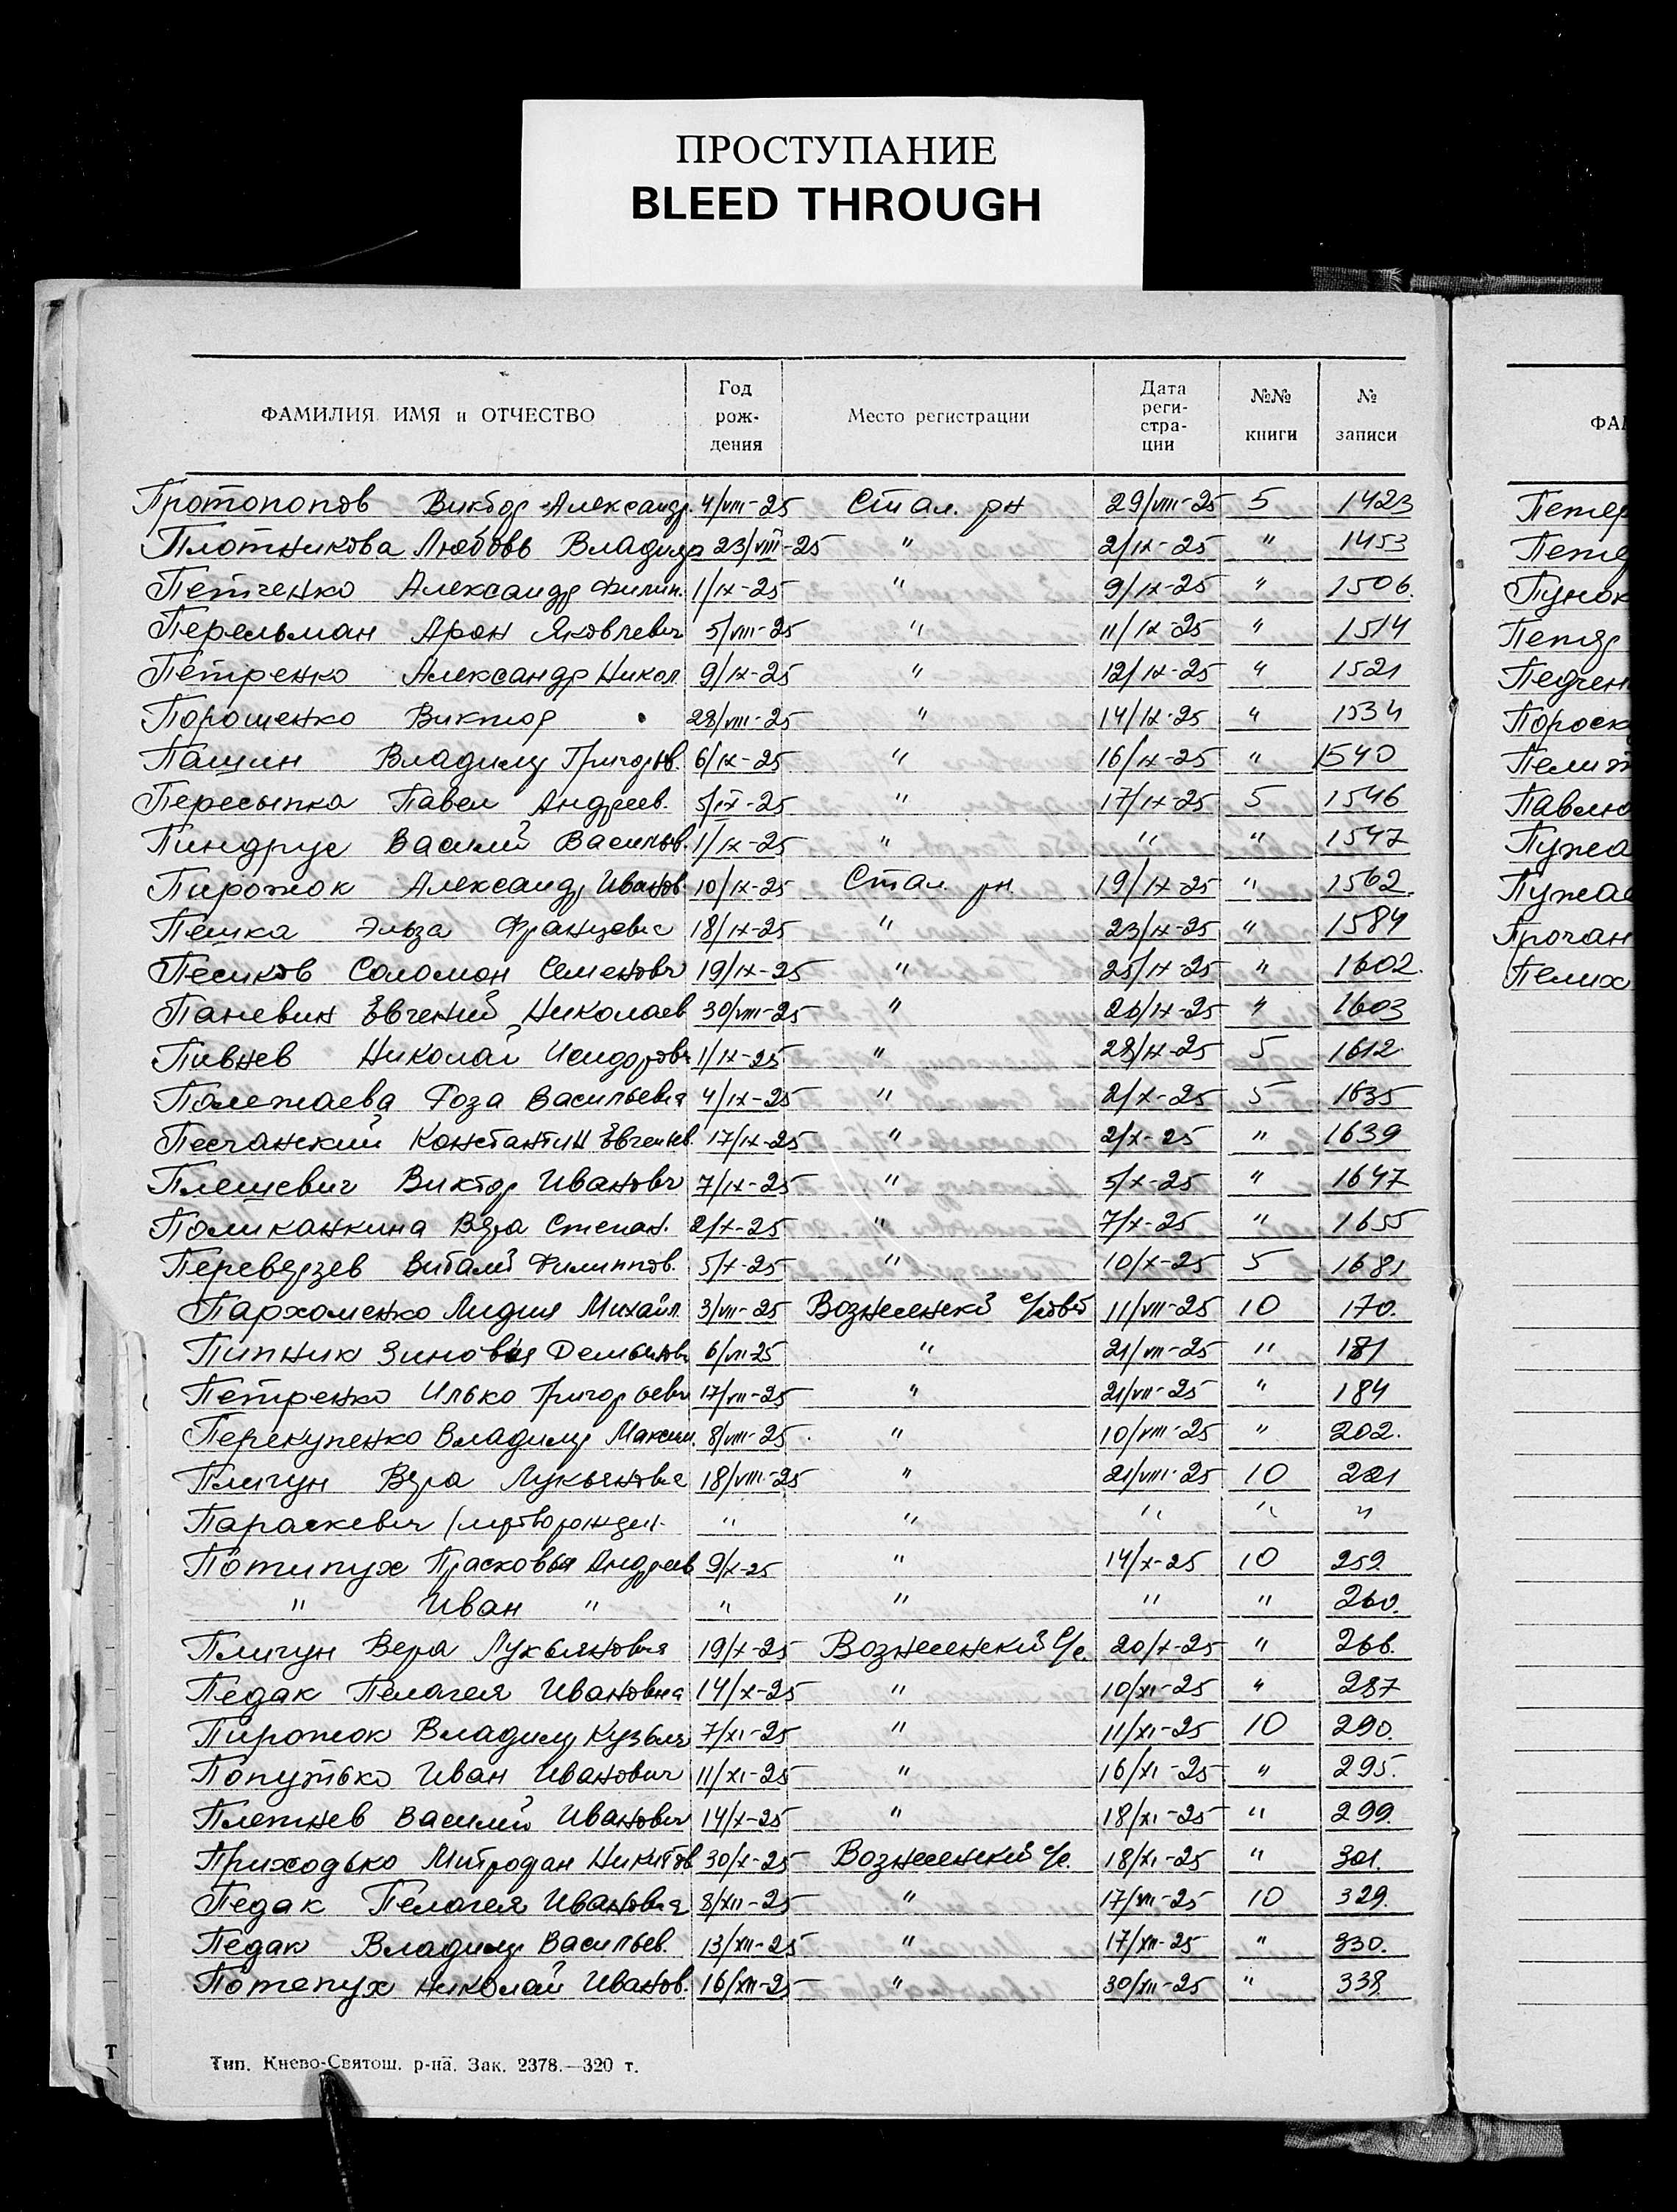 ПРОСТУПАНИЕ
BLEED THROUGH
ФАМИЛИЯ, ИМЯ и ОТЧЕСТВО Год рож-дения Место регистрации Дата реги-стра-ции №№ книги № записи
Протопопов Виктор Александр. 4/VIII-25 Стал. рн 29/VIII-25 5 1423
Плотникова Любовь Владимр 23/VIII-25 " 2/IX-25 " 1453
Петченко Александр Филип. 1/IX-25 " 9/IX-25 " 1506.
Перельман Арон Яковлевич 5/VIII-25 " 11/IX-25 " 1514
Петренко Александр Никол. 9/IX-25 " 12/IX-25 " 1521
Порошенко Виктор 28/VIII-25 " 14/IX-25 " 1534
Пашин Владимир Григорьев. 6/IX-25 " 16/IX-25 " 1540
Пересыпка Павел Андреев. 5/IX-25 " 17/IX-25 5 1546
Пиндрус Василий Васильев. 1/IX-25 " " " 1547
Пирожок Александр Иванов. 10/IX-25 Стал. рн. 19/IX-25 " 1562.
Пешка Эльза Францевна 18/IX-25 " 23/IX-25 " 1584
Песиков Соломон Семенович 19/IX-25 " 25/IX-25 " 1602.
Паневин Евгений Николаев 30/VIII-25 " 26/IX-25 " 1603
Пивнев Николай Исидорович 1/IX-25 " 28/IX-25 5 1612
Полежаева Роза Васильевна 4/IX-25 " 2/X-25 5 1635
Песчанский Константин Евгеньев. 17/IX-25 " 2/X-25 " 1639
Плешевич Виктор Иванович 7/IX-25 " 5/X-25 " 1647
Поликанкина Вера Степан. 2/X-25 " 7/X-25 " 1655
Переверзев Виталий Филиппов. 5/X-25 " 10/X-25 5 1681
Пархоменко Лидия Михайл. 3/VII-25 Вознесенский с/совет 11/VII-25 10 170.
Пипник Зиновия Демьянов 6/VII-25 " 21/VII-25 " 181
Петренко Илько Григорьевич 17/VII-25 " 21/VII-25 " 184
Перекупенко Владимир Максим. 8/VIII-25 " 10/VIII-25 " 202.
Пличун Вера Лукьяновна 18/VIII-25 " 21/VIII-25 10 221
Параскевич (мертворожден. " " " " "
Потипух Прасковья Андреев 9/X-25 " 14/X-25 10 259
" Иван " " " " " 260.
Пличун Вера Лукьяновна 19/X-25 Вознесенский с/с. 20/X-25 " 266.
Педак Пелагея Ивановна 14/X-25 " 10/XI-25 " 287
Пирожок Владимир Кузьмич 7/XI-25 " 11/XI-25 10 290.
Попутько Иван Иванович 11/XI-25 " 16/XI-25 " 295.
Плетнев Василий Иванович 14/X-25 " 18/XI-25 " 299.
Приходько Митродан Никитов 30/X-25 Вознесенский с/с. 18/XI-25 " 301.
Педак Пелагея Ивановна 8/XII-25 " 17/XII-25 10 329.
Педак Владимир Васильев. 13/XII-25 " 17/XII-25 " 330.
Потапух Николай Иванов. 16/XII-25 " 30/XII-25 " 338.
Тип. Киево-Святош. р-на. Зак. 2378.—320 т.